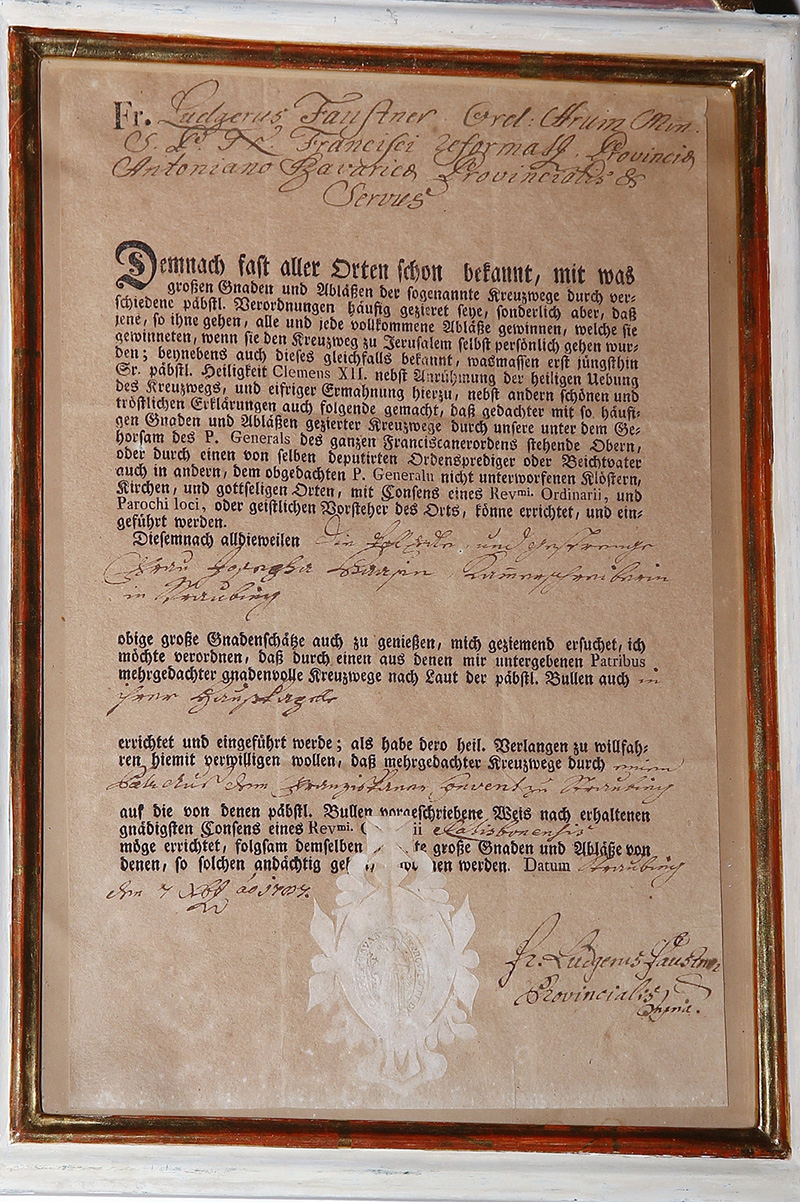 Fr. Ludgerus Faustner Ord: Min.
S. P. N. Francisci reformat. Provinciæ
Antoniano Bavaricæ Provincialis &
Servus
Demnach fast aller Orten schon bekannt, mit was
großen Gnaden und Abläßen der sogenannte Kreuzwege durch ver-
schiedene päbstl. Verordnungen häufig gezieret seye, sonderlich aber, daß
jene, so ihne gehen, alle und jede vollkommene Abläße gewinnen, welche sie
gewinneten, wenn sie den Kreuzweg zu Jerusalem selbst persönlich gehen wur-
den; beynebens auch dieses gleichfalls bekannt, wasmassen erst jüngsthin
Sr. päbstl. Heiligkeit Clemens XII. nebst Anrühmung der heiligen Uebung
des Kreuzwegs, und eifriger Ermahnung hierzu, nebst andern schönen und
tröstlichen Erklärungen auch folgende gemacht, daß gedachter mit so häufi-
gen Gnaden und Abläßen gezierter Kreuzwege durch unsere unter dem Ge-
horsam des P. Generals des ganzen Franciscanerordens stehende Obern,
oder durch einen von selben deputirten Ordensprediger oder Beichtvater
auch in andern, dem obgedachten P. Generaln nicht unterworfenen Klöstern,
Kirchen, und gottseligen Orten, mit Consens eines Revmi. Ordinarii, und
Parochi loci, oder geistlichen Vorsteher des Orts, könne errichtet, und ein-
geführt werden.
Diesemnach alldieweilen die und gestrenge
Frau Josepha Kammerschreiberin
in Straubing
obige große Gnadenschätze auch zu genießen, mich geziemend ersuchet, ich
möchte verordnen, daß durch einen aus denen mir untergebenen Patribus
mehrgedachter gnadenvolle Kreuzwege nach Laut der päbstl. Bullen auch in
ihrer Hauskapelle
errichtet und eingeführt werde; als habe dero heil. Verlangen zu willfah-
ren hiemit verwilligen wollen, daß mehrgedachter Kreuzwege durch einen
Patr aus dem Franziskaner Convent zu Straubing
auf die von denen päbstl. Bullen vorgeschriebene Weis nach erhaltenen
gnädigsten Consens eines Revmi. Ratisbonensis
möge errichtet, folgsam demselben große Gnaden und Abläße von
denen, so solchen andächtig werden. Datum Straubing
den 7
Fr. Ludgerus Faustner
Provincialis